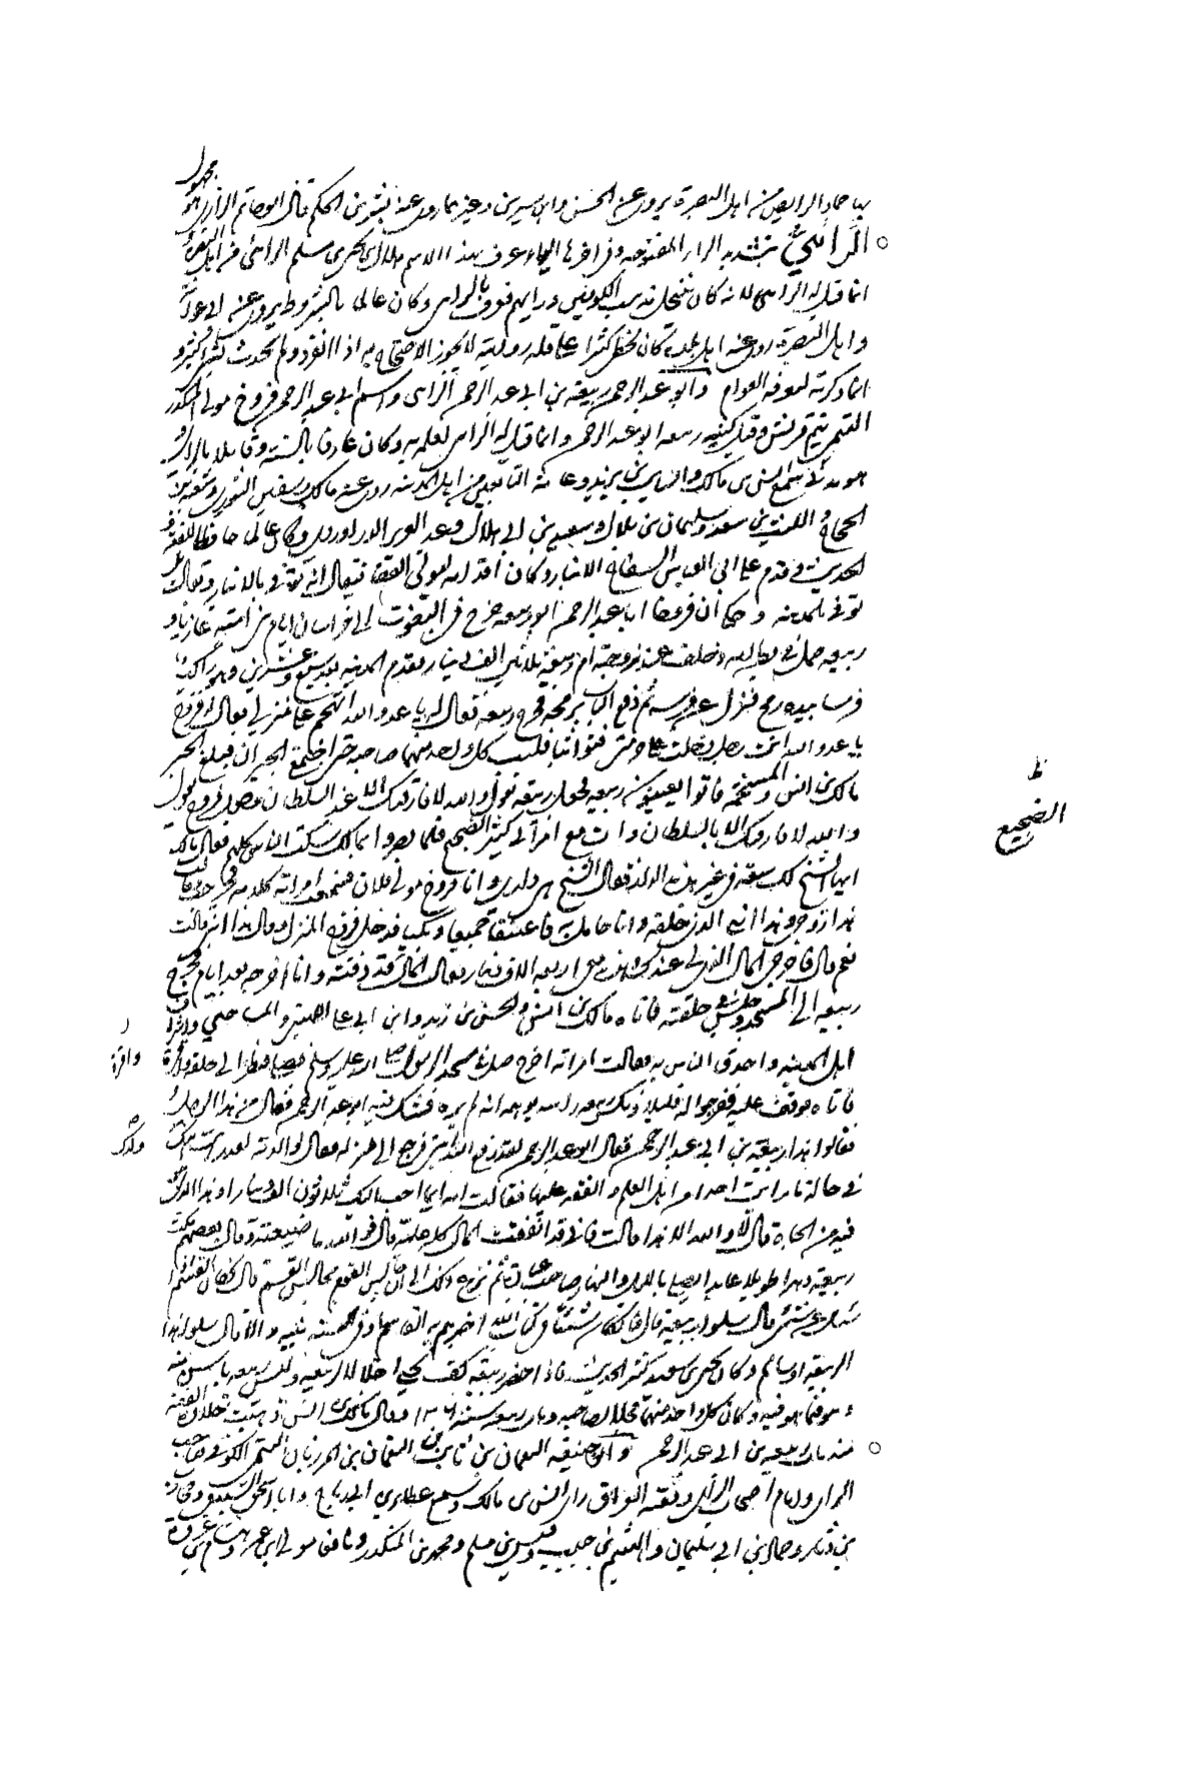 حماد الرايض من اهل البصرة يروى عن الحسن وابن سيرين وغيرهما روى عنه بشر بن الحكم قال ابو حاتم الرازى هو مجهول
الرائىّ بتشديد الراء المفتوحة وفى اخرها الياء عرف بهذا الاسم هلال بن يحيى بن مسلم الرائى من اهل البصرة
انما قيل له الراى لانه كان ينتحل مذهب الكوفيين ورايهم فعرف بالراى وكان عالما بالشروط يروى عن ابى عوانة
واهل البصرة روى عنه اهل بلده كان يخطئ كثيرا على قلة روايته لا يجوز الاحتجاج به اذا انفرد ولم يحدث بشئ كثير و
انما ذكرته لمعرفة العوام وابو عبد الرحمن ربيعة بن ابى عبد الرحمن الراى واسم ابى عبد الرحمن فروخ مولى المنكدر
التيمى تيم قريش وقيل كنيته ربيعة ابو عبد الرحمن وانما قيل له الراى لعلمه به وكان عارفا بالسنة وقايلا بالراى و
هو مدنى سمع انس بن مالك والسايب بن يزيد وعامة التابعين من اهل المدينة روى عنه مالك وسفين الثورى وشعبة بن
الحجاج والليث بن سعد وسليمان بن بلال وسعيد بن ابى هلال وعبد العزيز الدراوردى وكان عالما حافظا للفقه و
الحديث وقدم على ابى العباس السفاح الانبار وكان اقدمه ليولى القضا فيقال انه توفى بالانبار ويقال بل
توفى بالمدينة وحكى ان فروخا ابا عبد الرحمن ابو ربيعة خرج فى البعوث الى خراسان ايام بنى امية غازيا و
ربيعة حمل فى بطن امه وخلف عند زوجته ام ربيعة ثلاثين الف دينار فقدم المدينة بعد سبع وعشرين وهو راكب
فرسا بيده رمح فنزل عن فرسه ثم دفع الباب برمحه فخرج ربيعة فقال له يا عدو الله اتهجم على منزلى فقال له فروخ
يا عدو الله انت رجل دخلت على حرمتى فتواثبا فتلبب كل واحد منهما صاحبه حتى اجتمع الجيران فبلغ الخبر
مالك بن انس والمشيخة فاتوا يعينون ربيعة فجعل ربيعة يقول والله لا فارقتك الا عند السلطان وجعل فروخ يقول
والله لا فارقتك الا بالسلطان وانت مع امراتى وكثر الضجيج فلما بصروا بمالك سكت الناس كلهم فقال مالك
ايها الشيخ لك سعة فى غير هذه الدار فقال الشيخ هى دارى وانا فروخ مولى بنى فلان فسمعت امراته كلامه فخرجت فقالت
هذا زوجى وهذا ابنى الذى خلفه وانا حامل به فاعتنقا جميعا وبكيا فدخل فروخ المنزل وقال هذا ابنى قالت
نعم قال فاخرجى المال الذى لى عندك وهذه معى اربعة الاف دينار فقالت المال قد دفنته وانا اخرجه بعد ايام فخرج
ربيعة الى المسجد وجلس فى حلقته فاتاه مالك بن انس والحسن بن زيد وابن ابى على اللهبى والمساحقى واشراف
اهل المدينة واحدق الناس به فقالت امراته اخرج صل فى مسجد الرسول صلى الله عليه وسلم فصلى فنظر الى حلقة وافرة
فاتاه فوقف عليه ففرجوا له قليلا ونكس ربيعة راسه يوهمه انه لم يره فشك فيه ابو عبد الرحمن فقال من هذا الرجل
فقالوا هذا ربيعة بن ابى عبد الرحمن فقال ابو عبد الرحمن لقد رفع الله ابنى فرجع الى منزله فقال لوالدته لقد رايت ابنك
فى حالة ما رايت احدا من اهل العلم والفقه عليها فقالت امه ايما احب اليك ثلاثون الف دينار او هذا الذى هو
فيه من الجاه قال لا والله الا هذا قالت فانى قد انفقت المال كله عليه قال فوالله ما ضيعته وقال بعضهم مكث
ربيعة دهرا طويلا عابدا يصلى بالليل والنهار
قال سلوا ربيعة
الربيعة او سالم وكان يحيى بن سعيد كثير الحديث فاذا حضر ربيعة كف يحيى اجلالا لربيعة وليس ربيعة باسن منه
وهو فيما هو فيه وكان كل واحد منهما مجلا لصاحبه ومات ربيعة سنة ١٣٦ وقال مالك بن انس ذهبت حلاوة الفقه
منذ مات ربيعة بن ابى عبد الرحمن وابو حنيفة النعمان بن ثابت بن النعمان بن المرزبان التيمى الكوفى صاحب
الراى وامام اصحاب الراى وفقيه العراق راى انس بن مالك وسمع عطا بن ابى رباح وابا اسحق السبيعى ومحارب
بن دثار وحماد بن ابى سليمان والهيثم بن حبيب وقيس بن مسلم ومحمد بن المنكدر ونافعا مولى ابن عمر وهشام بن عروة
ظ
الضجيج
وافرة